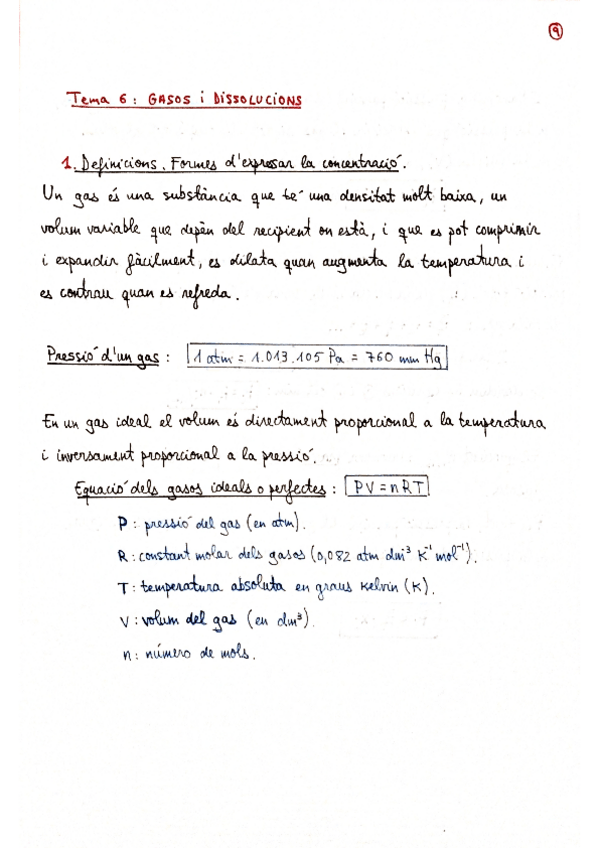 9
Tema 6: GASOS i DISSOLUCIONS
1. Definicions. Formes d'expresar la concentració.
Un gas és una substància que té una densitat molt baixa, un
volum variable que depèn del recipient on està, i que es pot comprimir
i expandir fàcilment, es dilata quan augmenta la temperatura i
es contrau quan es refreda.
Pressió d'un gas: 1 atm = 1.013.105 Pa = 760 mm Hg
En un gas ideal el volum és directament proporcional a la temperatura
i inversament proporcional a la pressió.
Equació dels gasos ideals o perfectes: PV = nRT
P: pressió del gas (en atm).
R: constant molar dels gasos (0,082 atm dm³ K⁻¹ mol⁻¹).
T: temperatura absoluta en graus Kelvin (K).
V: volum del gas (en dm³).
n: número de mols.